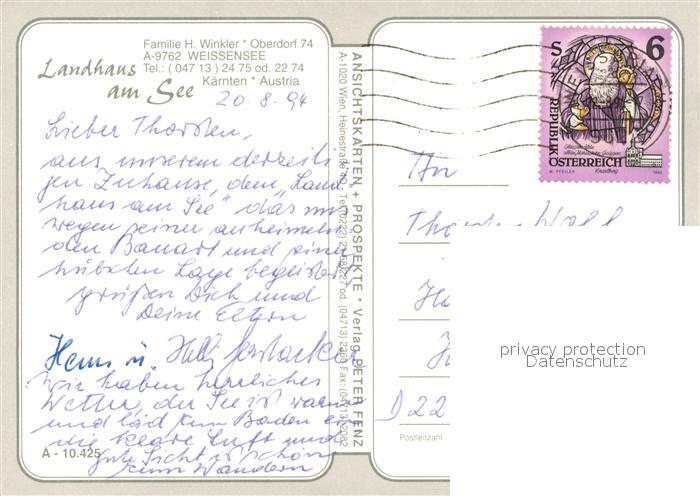 Familie H. Winkler * Oberdorf 74
A-9762 WEISSENSEE
Tel.: ( 047 13 ) 24 75 od. 22 74
Kärnten * Austria
Landhaus
am See
20.8.94
Lieber Thorsten,
aus unserem derzeiti
gen Zuhause, dem „Land
haus am See" das uns
wegen seiner anheimeln
den Bauart und seiner
hübschen Lage begeistert
grüßen Dich und
Deine Eltern
Hans u.
Wir haben herrliches
Wetter, der See ist warm
und läd zum Baden ein
die klare Luft und
gute Sicht ist schön
zum Wandern
A - 10.425
ANSICHTSKARTEN + PROSPEKTE * Verlag PETER FENZ
A-1020 Wien, Heinestraße
S 6
REPUBLIK
ÖSTERREICH
An
D 22
Postleitzahl
privacy protection
Datenschutz